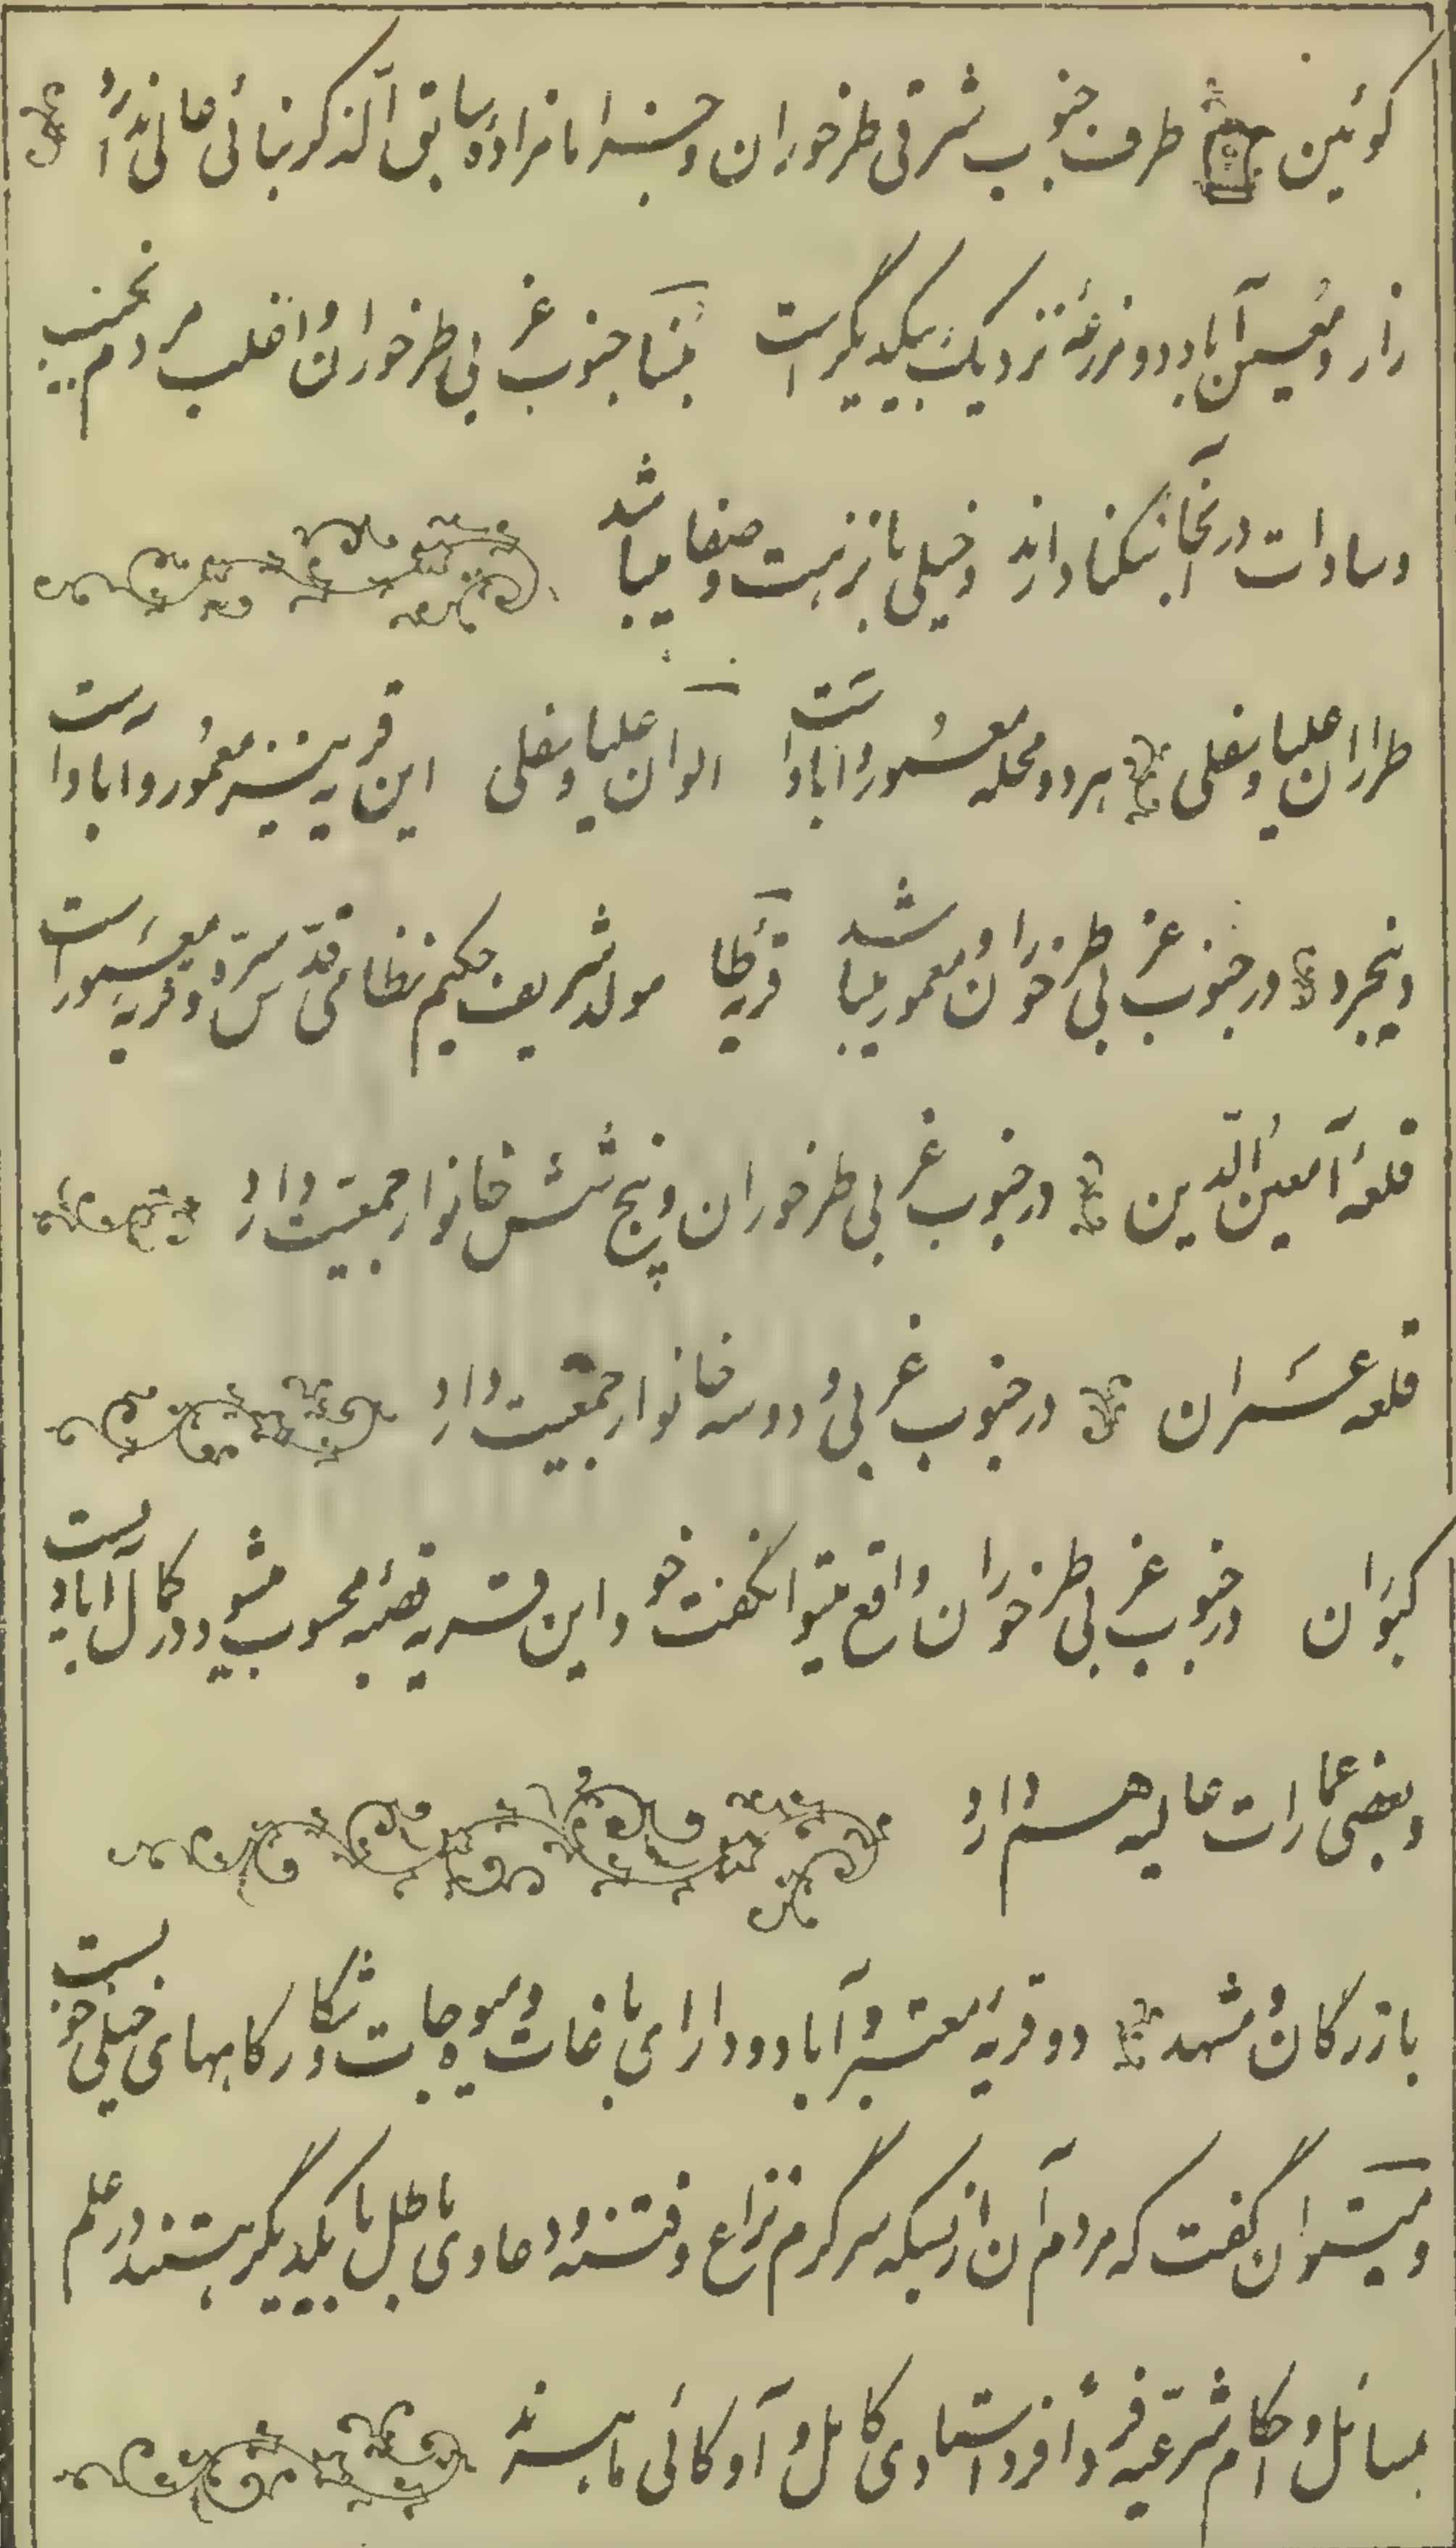 کوئین طرف جنوب شرقی طرخوران و جنب امامزادهٔ سابق الذکر بنائی عالی ندارد
زار و معین آباد دو مزرعهٔ نزدیک بیکدیگر است جنوب غربی طرخوران و اغلب مردم نجیب
و سادات در آنجا سکنا دارند و خیلی با نزهت و صفا میباشد
طراران علیا و سفلی هر دو محله معمور و آباد است الوان علیا و سفلی این قریه نیز معمور و آباد است
دینجرد در جنوب غربی طرخوران و معمور میباشد قریه طا مولد شریف حکیم نظامی قدّس سرّه و قریهٔ معمور است
قلعهٔ آمعین الدّین در جنوب غربی طرخوران و پنج شش خانوار جمعیّت دارد
قلعه عمران در جنوب غربی و دو سه خانوار جمعیّت دارد
کبوران در جنوب غربی طرخوران واقع و این قریه قصبه محسوب میشود و در کمال آبادیست
و بعضی عمارات عالیه هم دارد
بازرکان و مشهد دو قریهٔ معتبر و آباد و دارای باغات و میوه جات و شکارکاههای خیلی خوبست
و میتوان گفت که مردم آن از بسکه سرگرم نزاع و فتنه و دعاوی باطل با یکدیگر هستند در علم
مسائل و احکام شرعیه فرداً فرد استادی کامل و آوکائی ماهرند